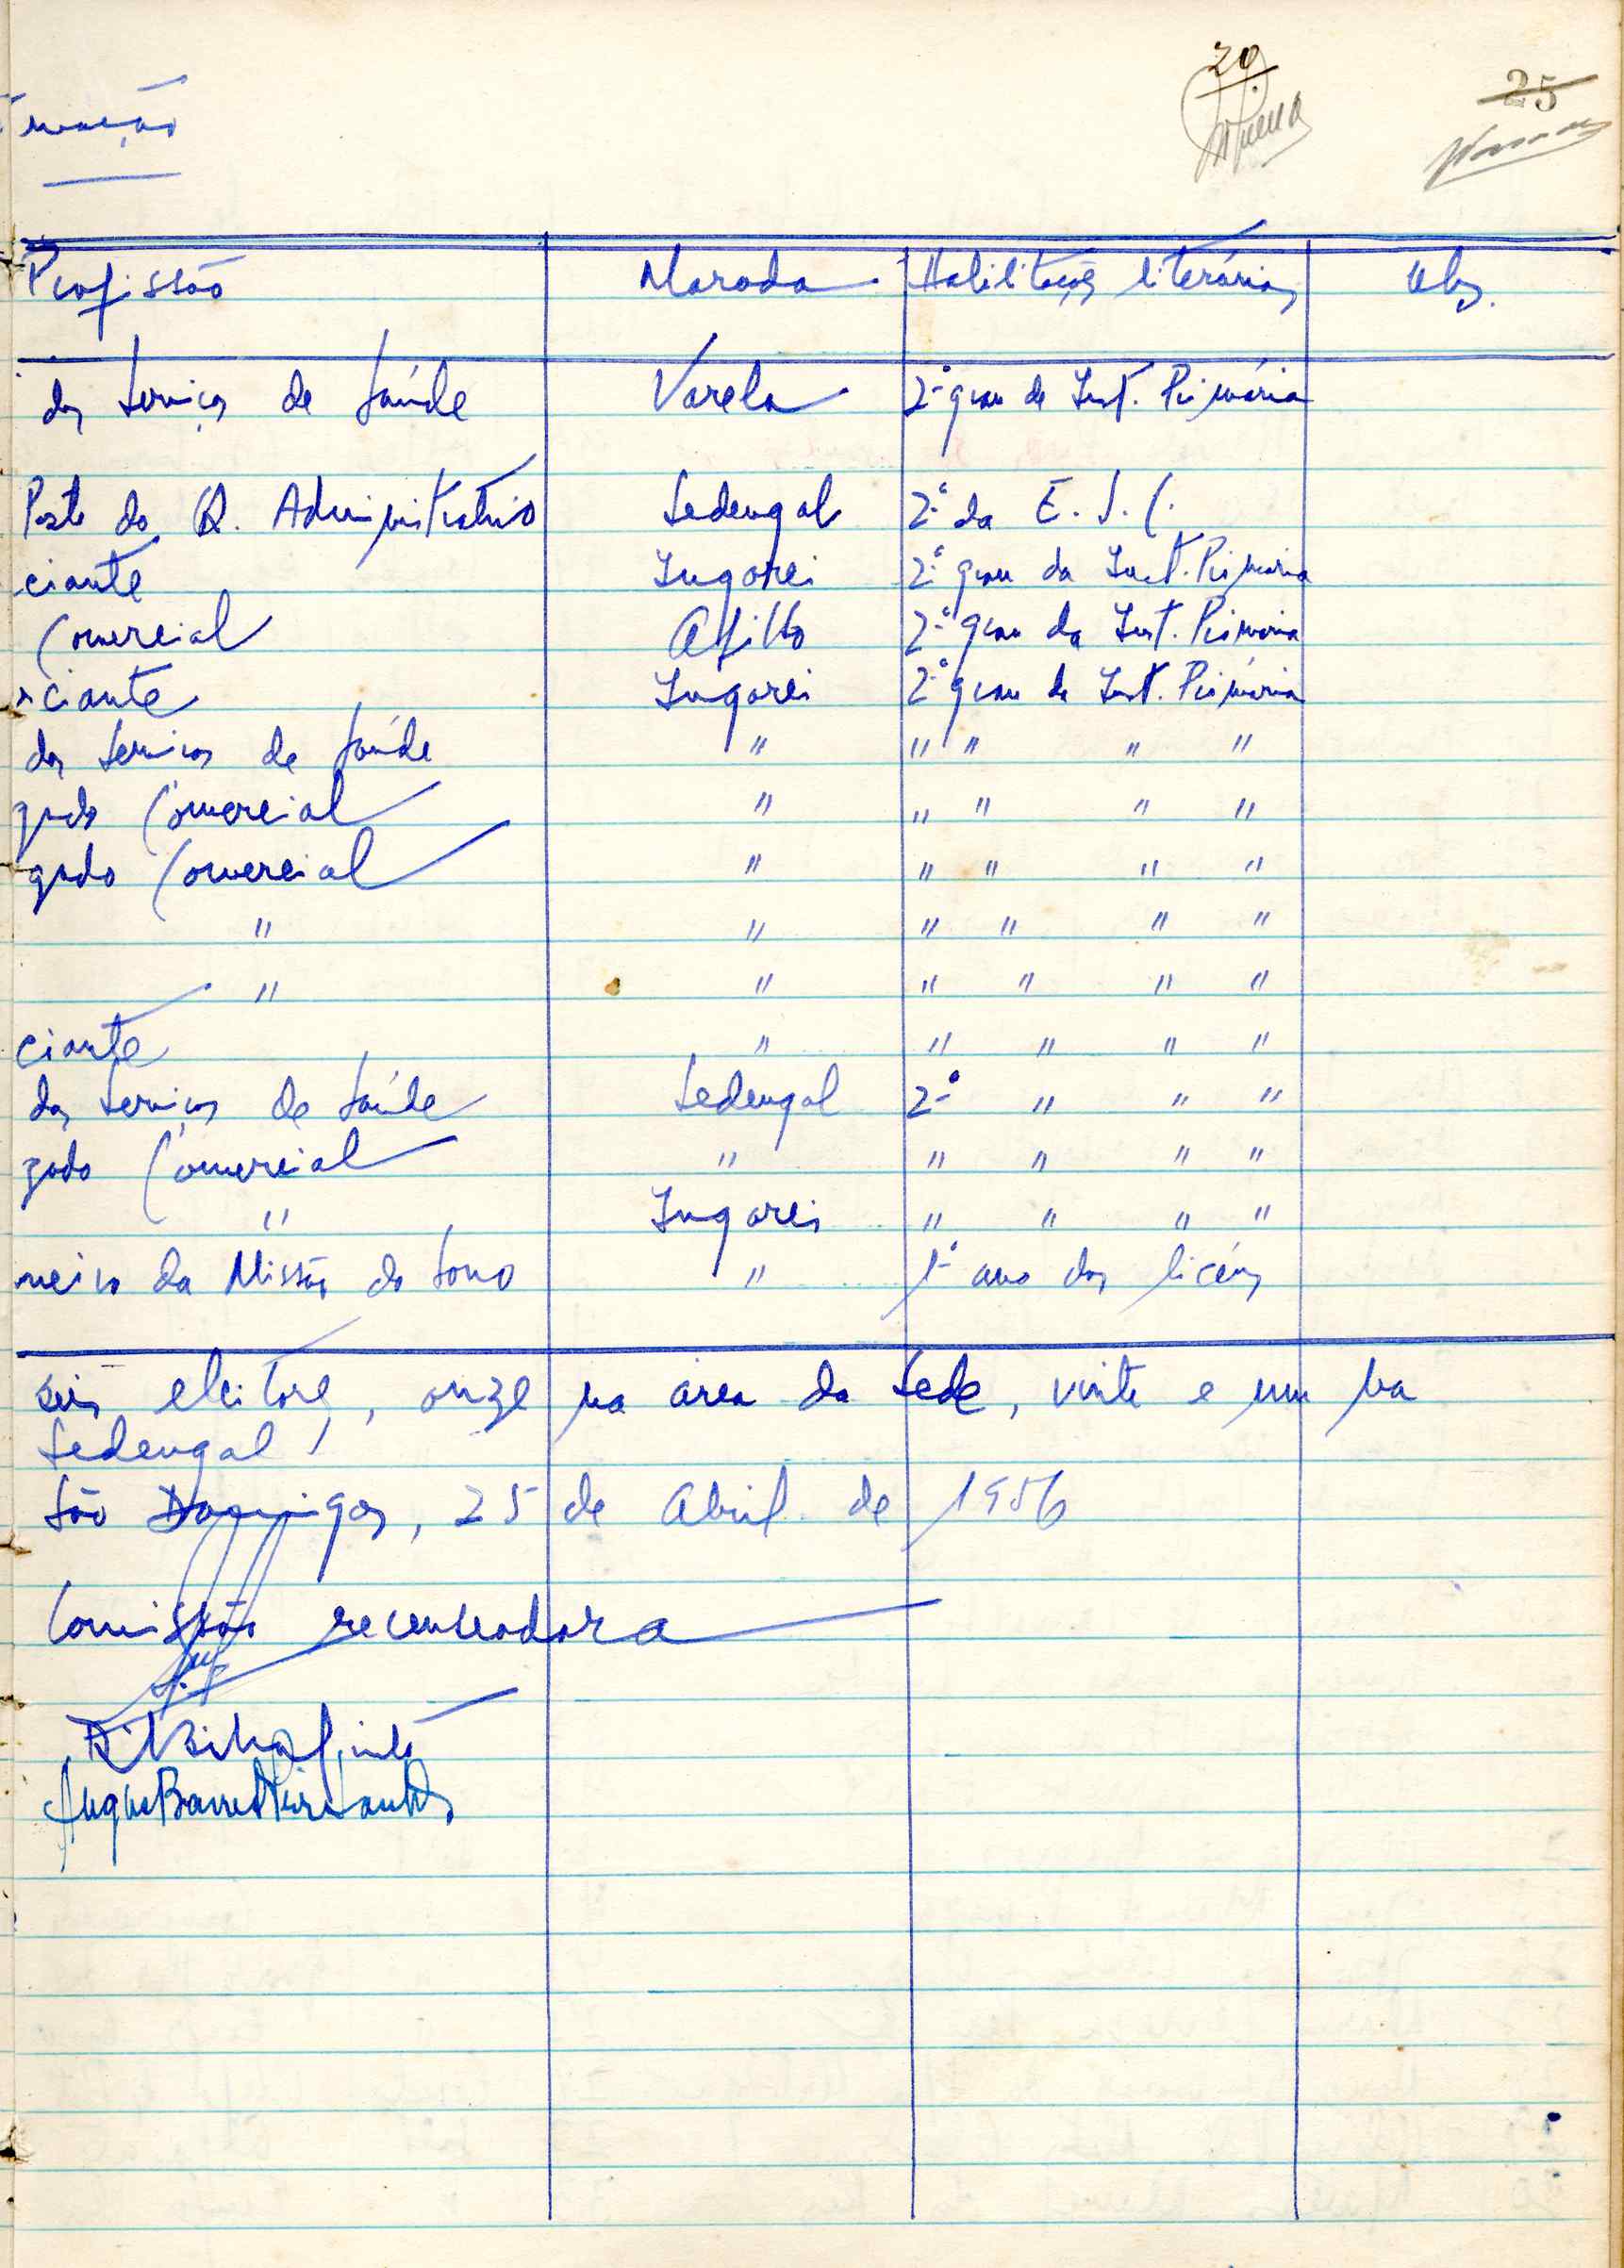 20
25
mação
Profissão Morada Habilitações literárias Obs.
dos Serviços de Saúde Varela 2.º grau de Inst. Primária
Posto do Q. Administrativo Sedengal 2.º da E. S. C.
ciante Ingorei 2.º grau da Inst. Primária
Comercial 2.º grau da Inst. Primária
ciante Ingorei 2.º grau de Inst. Primária
dos Serviços de Saúde " " " " "
gado Comercial " " " " "
gado Comercial " " " " "
" " " " " "
" " " " " "
ciante " " " " "
dos Serviços de Saúde Sedengal 2.º " " "
gado Comercial " " " " "
" Ingorei " " " "
meiro da Missão do Sono " 1.º ano dos liceus
seis eleitores, onze na área da Sede, vinte e um na
Sedengal.
São Domingos, 25 de Abril de 1956
Comissão recenseadora